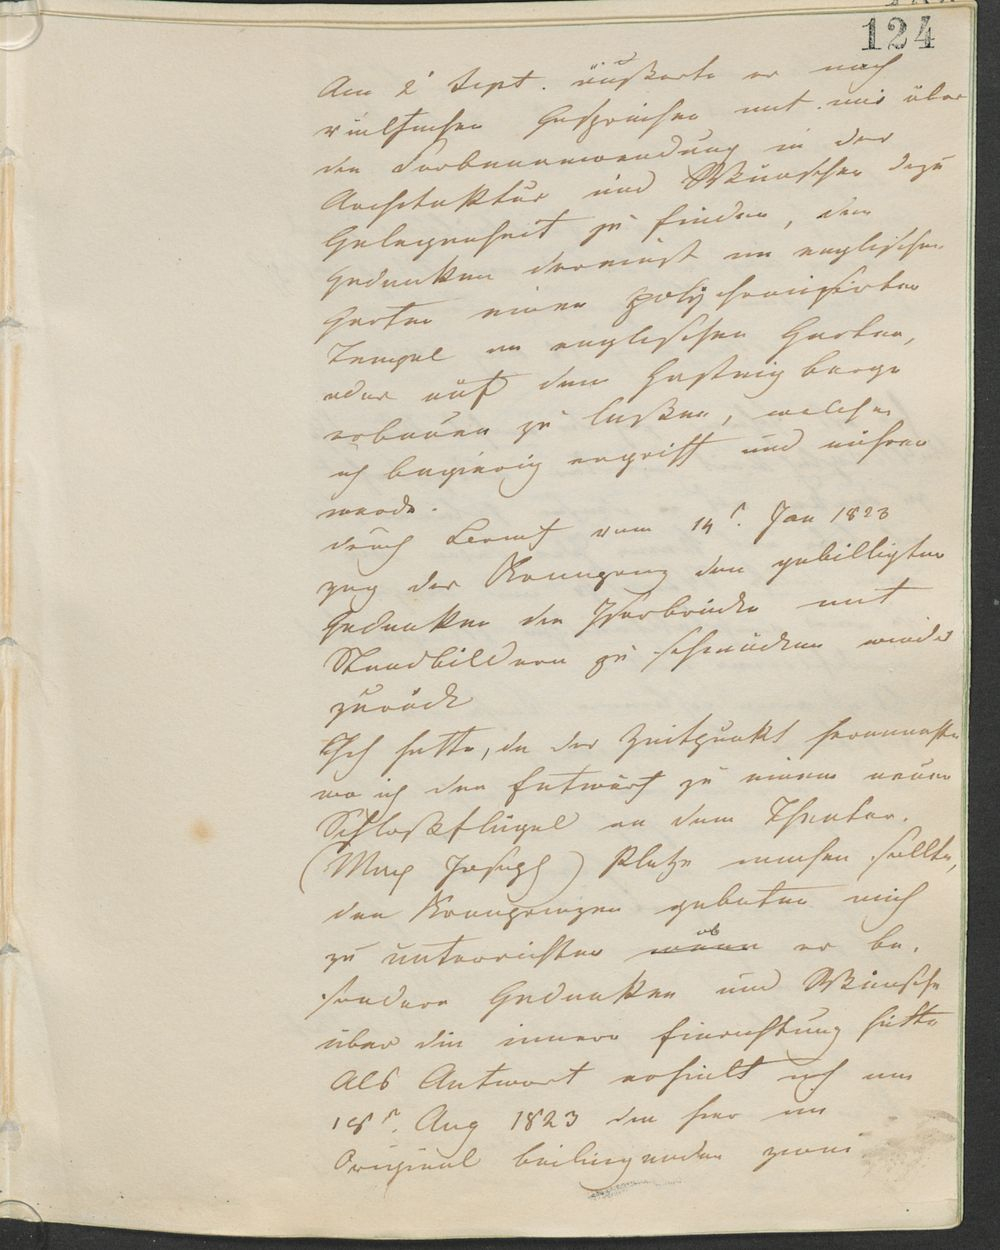 124
Am 2t Sept. äußerte er nach
vielfachen Gesprächen mit mir über
die Farbenanwendung in der
Architektur und Wünschen dazu
Gelegenheit zu finden, den
Gedanken dereinst im englischen
Garten einen polychromisirten
Tempel im englischen Garten,
oder auf dem Gasteig berge
erbauen zu laßen, welchen
ich begierig ergriff und nähren
werde.
durch vom 14t. Jan 1823
zog der Kronprinz den gebilligten
Gedanken die Isarbrücke mit
Standbildern zu schmücken wieder
zurück
Ich hatte, da der Zeitpunkt herannahte
wo ich den Entwurf zu einem neuen
Schloßflügel an dem Theater.
(Max Joseph) Platze machen sollte,
den Kronprinzen gebeten mich
zu unterrichten ob er be-
sondere Gedanken und Wünsche
über die innere Einrichtung hätte
Als Antwort erhielt ich am
18t. Aug 1823 den hier im
Original beiliegenden